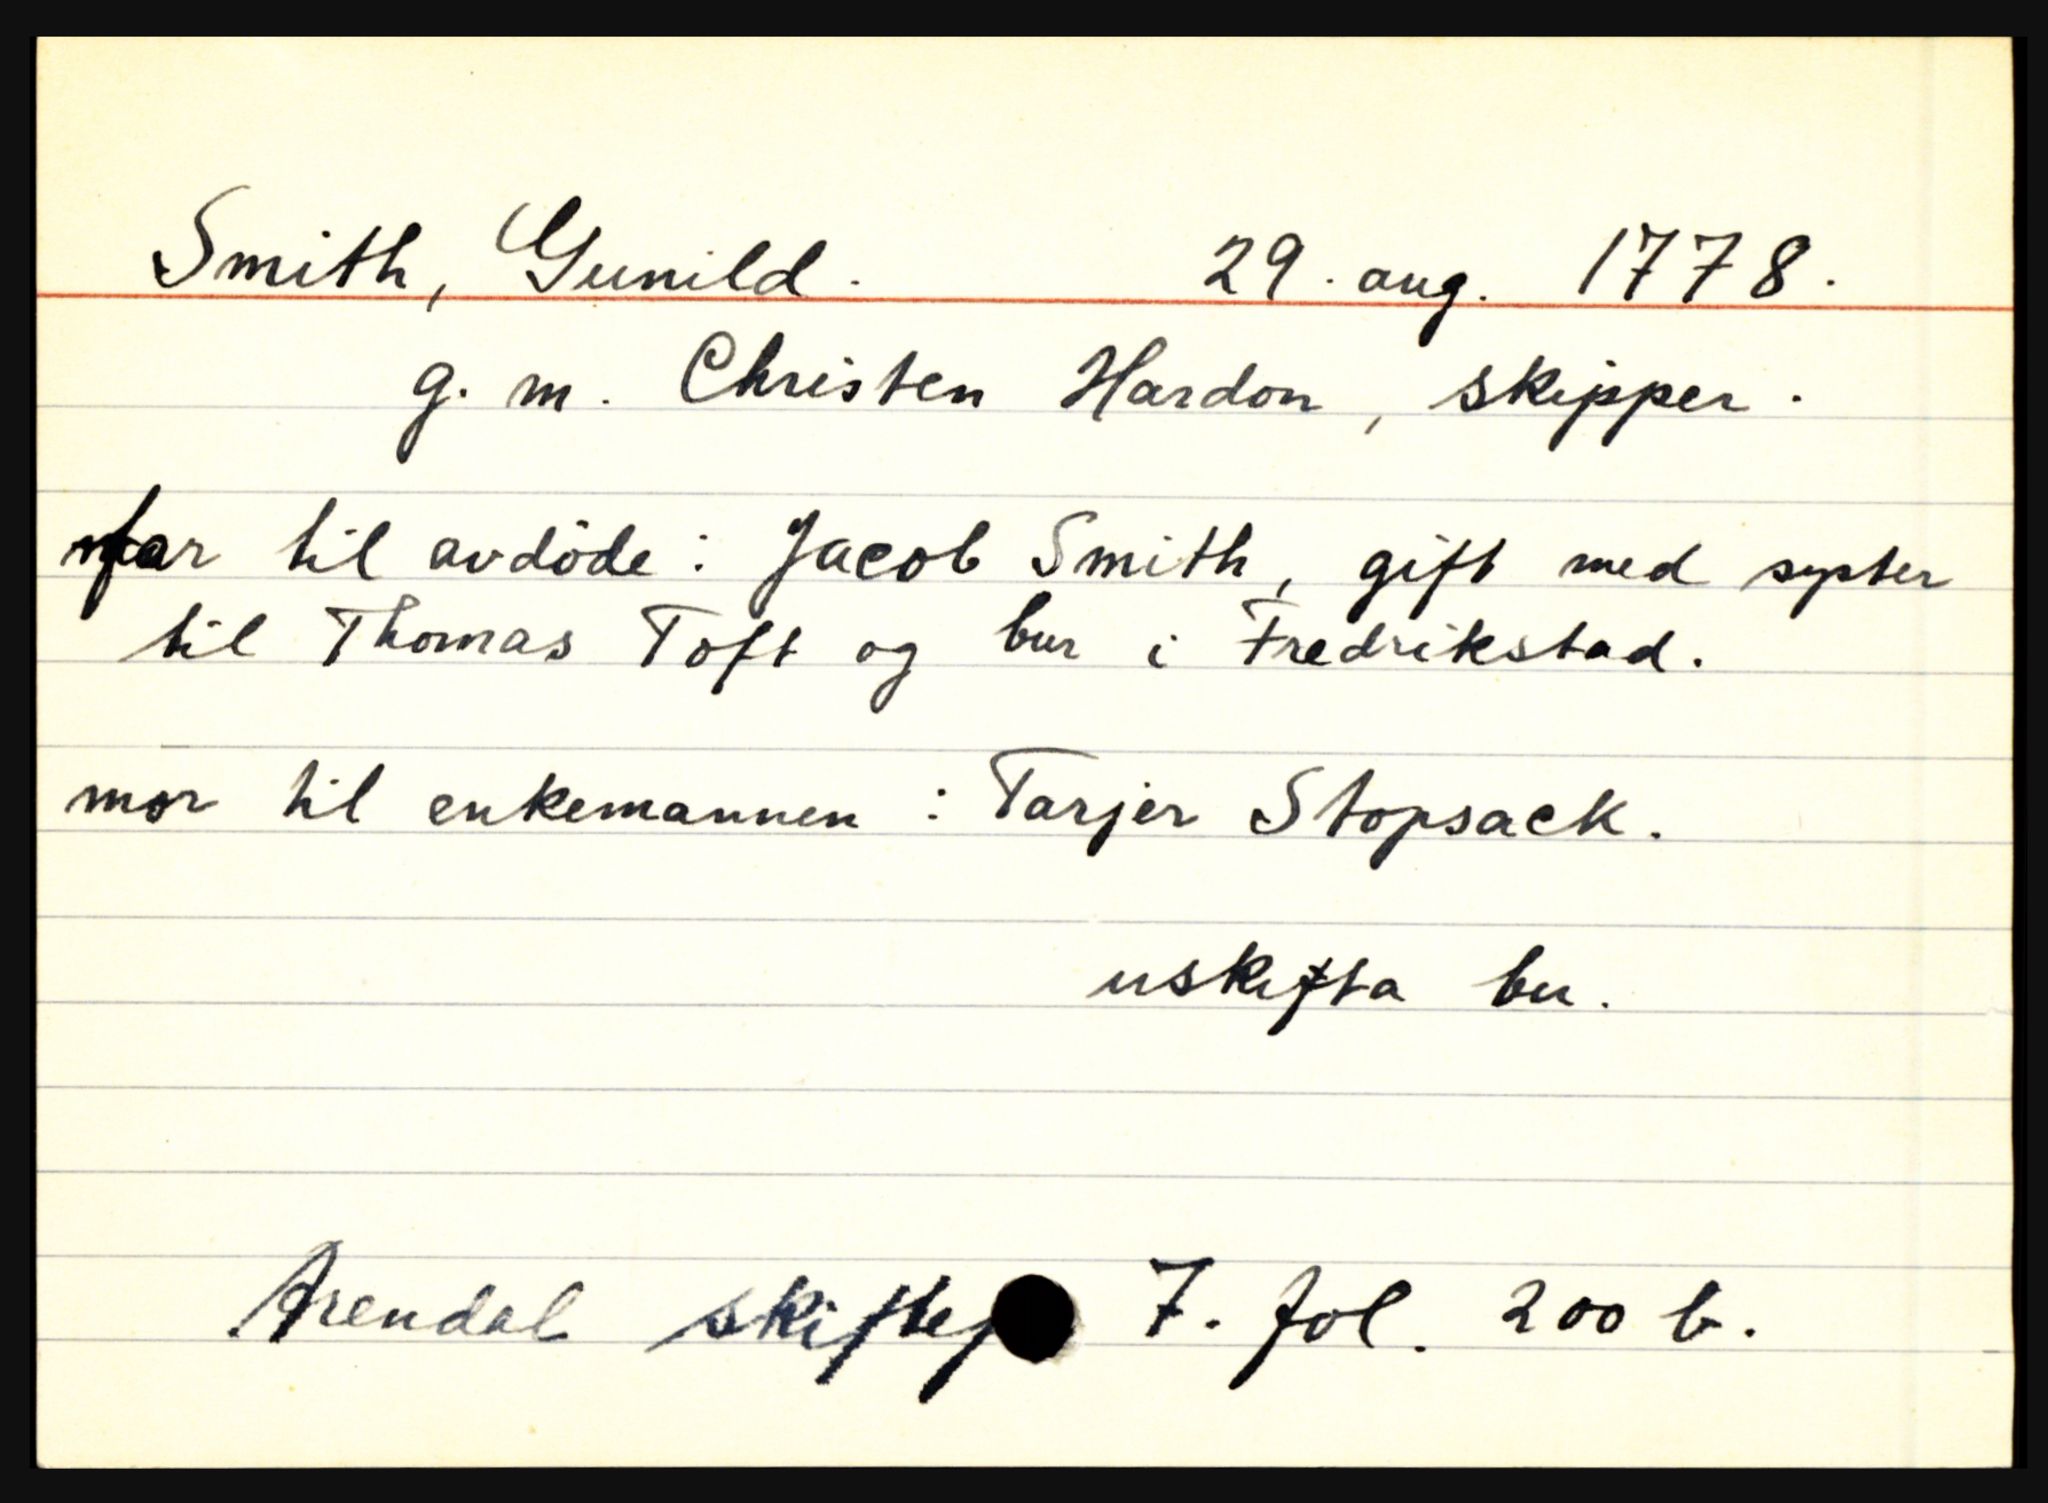 Smith, Gunild. 29. aug. 1778.
g. m. Christen Hardon, skipper.
far til avdöde: Jacob Smith, gift med syster
til Thomas Toft og bur i Fredrikstad.
mor til enkemannen: Tarjer Stopsack.
uskifta bu.
Arendal 7. fol. 200 b.